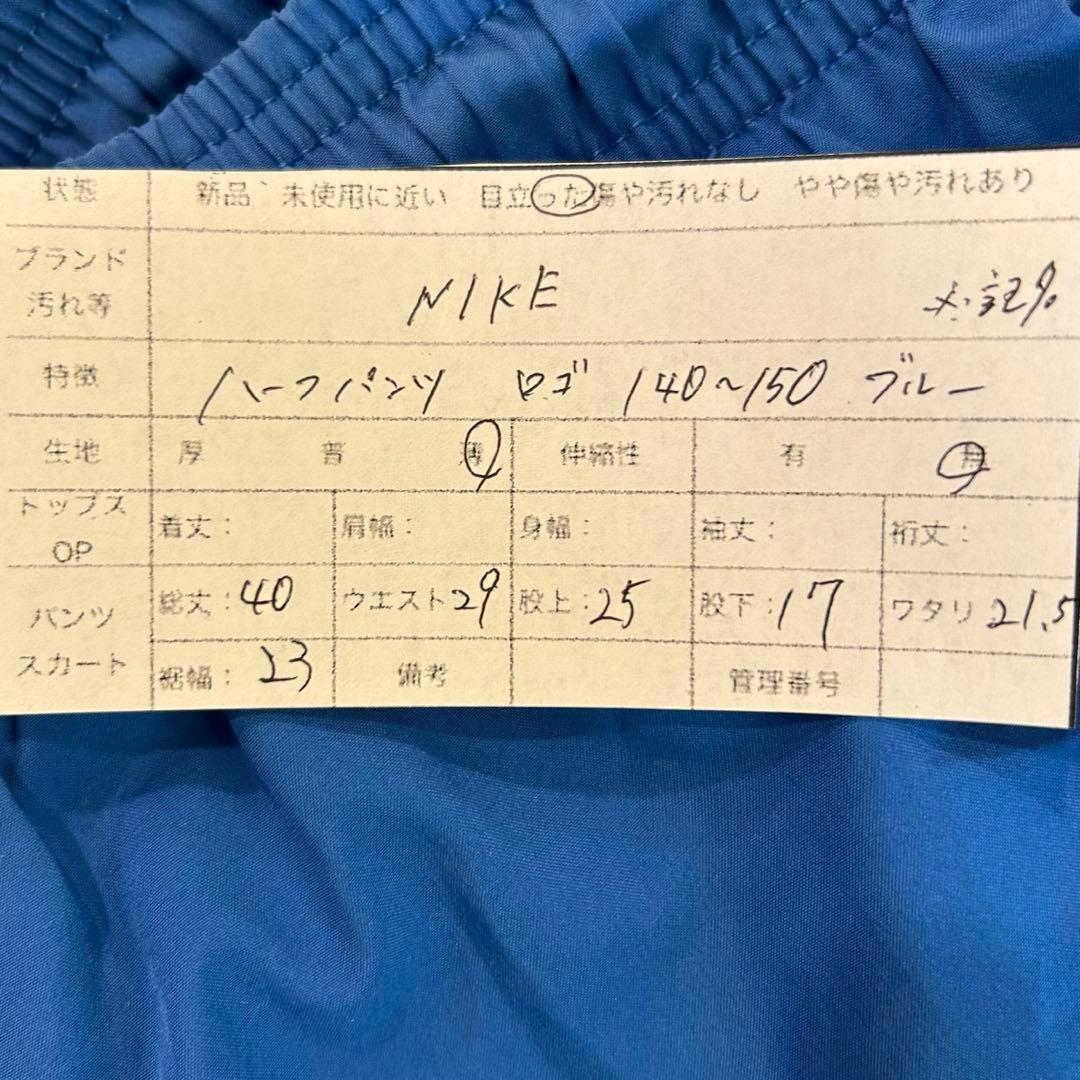 状態 新品 未使用に近い 目立った傷や汚れなし やや傷や汚れあり
ブランド
汚れ等 NIKE
特徴 ハーフパンツ ロゴ 140~150 ブルー
生地 厚 普 薄 伸縮性 有 無
トップス
OP 着丈: 肩幅: 身幅: 袖丈: 裄丈:
パンツ
スカート 総丈:40 ウエスト29 股上:25 股下:17 ワタリ21.5
裾幅:23 備考 管理番号